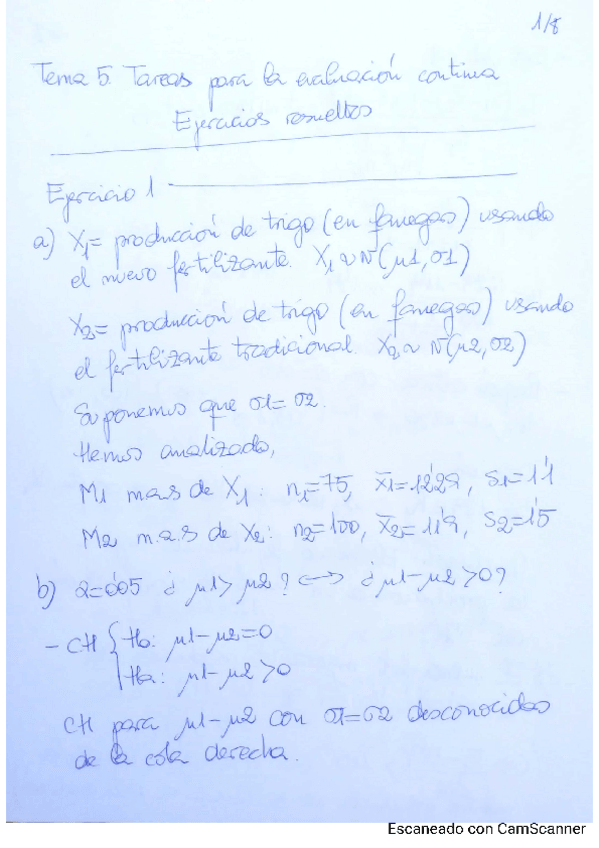 1/8
Tema 5. Tareas para la evaluación continua
Ejercicios resueltos
Ejercicio 1
a) X1= producción de trigo (en fanegas) usando
el nuevo fertilizante. X1 ~ N(μ1, σ1)
X2= producción de trigo (en fanegas) usando
el fertilizante tradicional. X2 ~ N(μ2, σ2)
Suponemos que σ1=σ2.
Hemos analizado,
M1 m.a.s de X1: n1=75, x̄1=12'29, S1=1'1
M2 m.a.s de X2: n2=100, x̄2=11'9, S2=1'5
b) α=0'05 ¿μ1>μ2? ⟷ ¿μ1-μ2>0?
- CH { Ho: μ1-μ2=0
Ha: μ1-μ2>0
CH para μ1-μ2 con σ1=σ2 desconocidas
de la cola derecha.
Escaneado con CamScanner